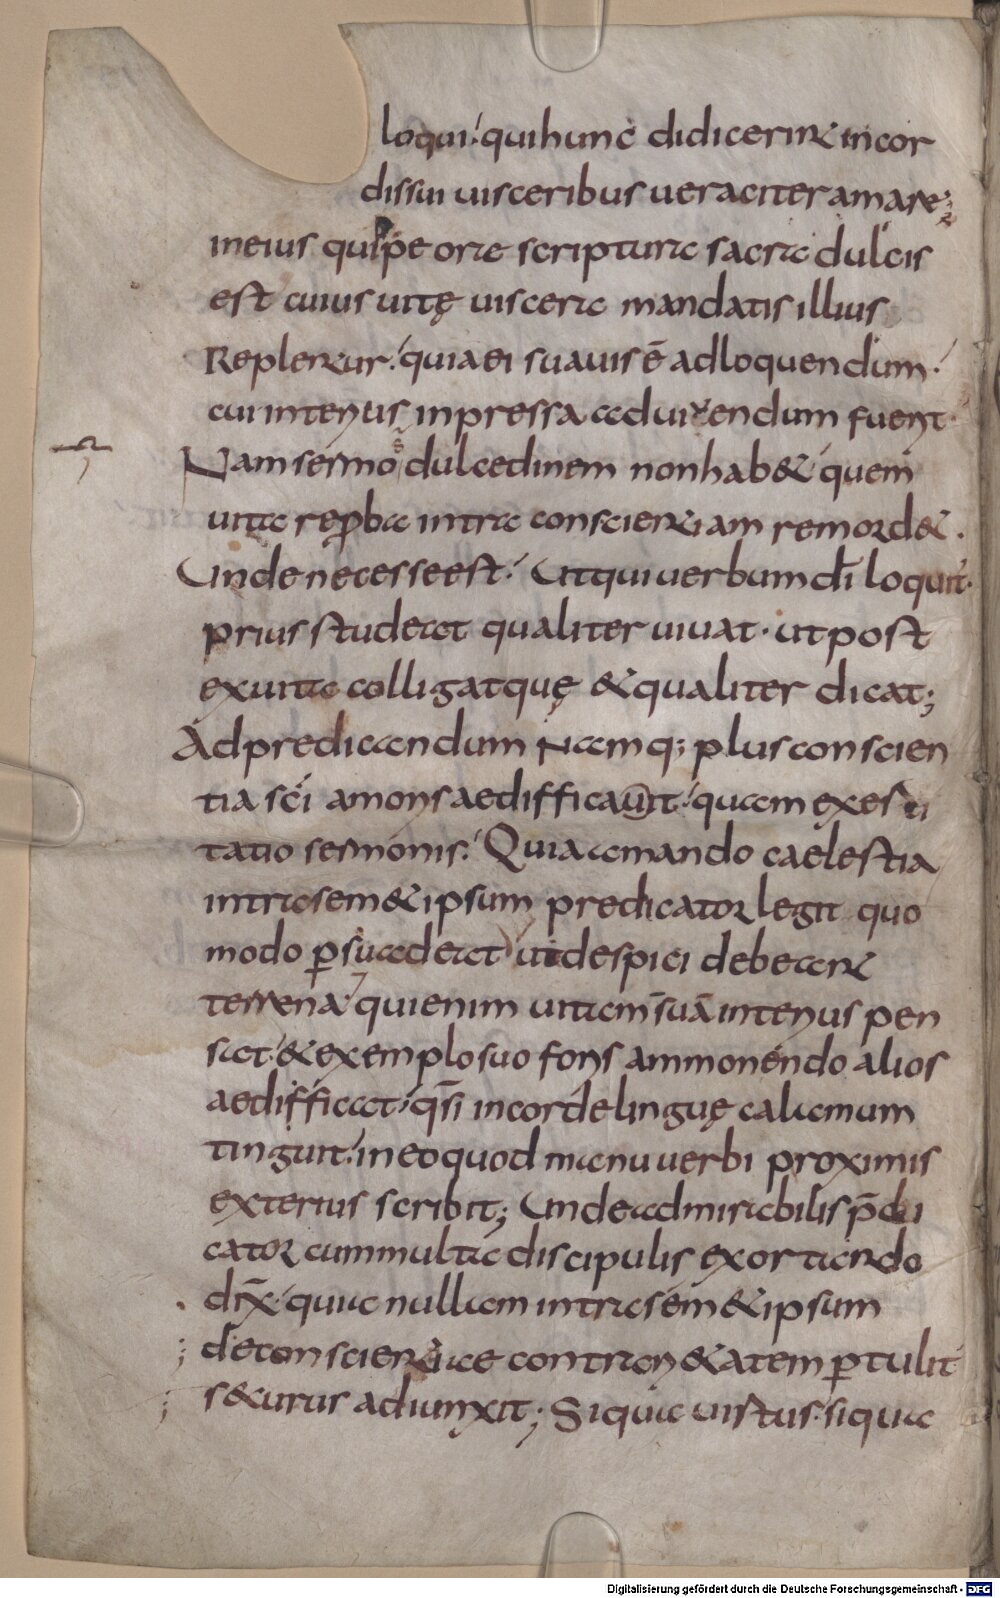 loqui. quihunc didicerint incor
dissui uisceribus ueraciter amare;
ineius quippe ore scriptura sacra dulcis
est cuius uitę uiscera mandatis illius
Replentur. quiaei suauis ē adloquendum.
cui intenus inpressa aduiuendum fuerit.
Nam sermo dulcedinem nonhab& quem
uita reproba intra conscientiam remord&.
Unde necesse est. Utqui uerbum dī loquit.
prius studeat qualiter uiuat. ut post
exuita colligat quę & qualiter dicat;
Ad predicandum namq; plus conscien
tia sci amoris aedifficauit. quam exesti
tatio sermonis. Quia amando caelestia
intrasem&ipsum predicator legit quo
modo psuadeat ut despici debeant
terrena. quienim uitam suā intenus pen
sat. & exemplo suo foris ammonendo alios
aedifficat. qsi incorde linguę calamum
tinguit. ineo quod manu uerbi proximis
exterius scribit; Unde admirabilis pdi
cator cum multa discipulis exortando
dix̄. quia nullam intrasem&ipsum
deconscientiae contrari&atem ptulit
s&urus adiunxit; Siqua uistus. siqua
Digitalisierung gefördert durch die Deutsche Forschungsgemeinschaft - DFG